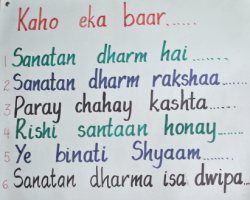 Kaho eka baar......
1 Sanatan dharm hai .......
2 Sanatan dharm rakshaa......
3 Paray chahay kashta......
4 Rishi santaan honay......
5 Ye binati Shyaam........
6. Sanatan dharma isa dwipa...